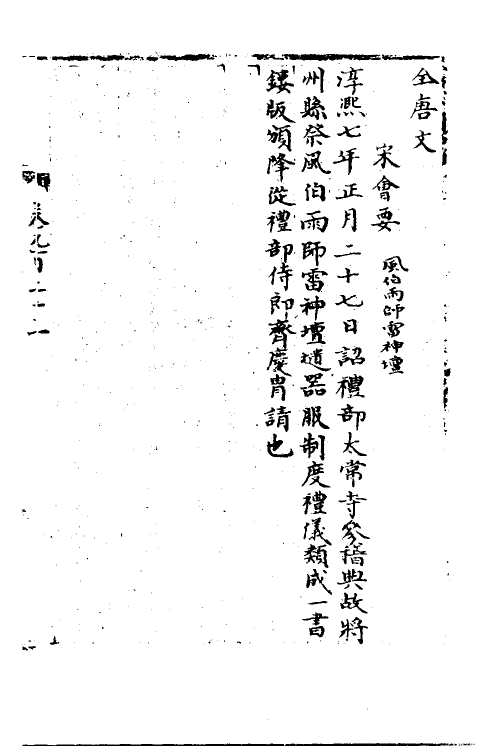 全唐文
宋會要
風伯雨師雷神壇
淳熙七年正月二十七日詔禮部太常寺參稽典故將
州縣祭風伯雨師雷神壇壝器服制度禮儀類成一書
鏤版頒降從禮部侍郎齊慶胄請也